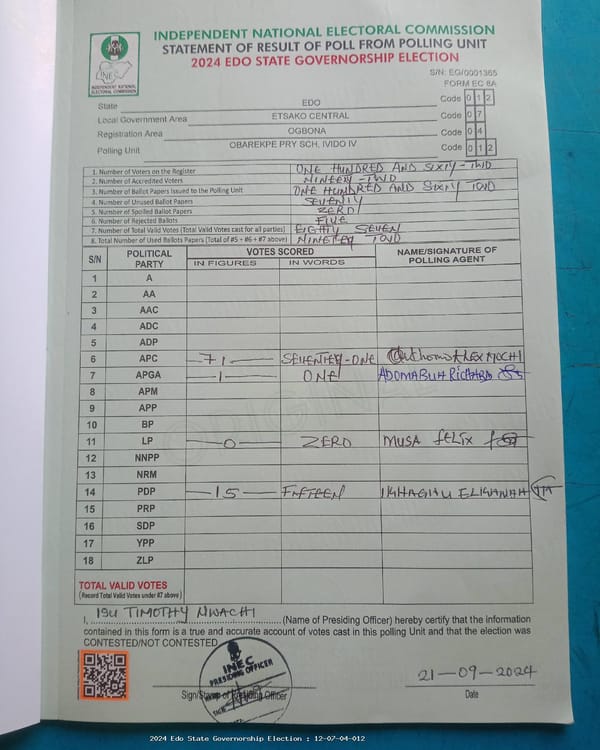 INDEPENDENT NATIONAL ELECTORAL COMMISSION
STATEMENT OF RESULT OF POLL FROM POLLING UNIT
2024 EDO STATE GOVERNORSHIP ELECTION
INEC
INDEPENDENT NATIONAL
ELECTORAL COMMISSION
S/N: EG/0001365
FORM EC 8A
State EDO Code 0 1 2
Local Government Area ETSAKO CENTRAL Code 0 7
Registration Area OGBONA Code 0 4
Polling Unit OBAREKPE PRY SCH, IVIDO IV Code 0 1 2
1. Number of Voters on the Register ONE HUNDRED AND SIXTY-TWO
2. Number of Accredited Voters NINETY-TWO
3. Number of Ballot Papers Issued to the Polling Unit ONE HUNDRED AND SIXTY TWO
4. Number of Unused Ballot Papers SEVENTY
5. Number of Spoiled Ballot Papers ZERO
6. Number of Rejected Ballots FIVE
7. Number of Total Valid Votes (Total Valid Votes cast for all parties) EIGHTY SEVEN
8. Total Number of Used Ballots Papers (Total of #5 + #6 + #7 above) NINETEY TWO
S/N POLITICAL PARTY VOTES SCORED NAME/SIGNATURE OF POLLING AGENT
IN FIGURES IN WORDS
1 A
2 AA
3 AAC
4 ADC
5 ADP
6 APC 71 SEVENTEY-ONE
7 APGA 1 ONE ADOMABUH RICHARD
8 APM
9 APP
10 BP
11 LP 0 ZERO MUSA FELIX
12 NNPP
13 NRM
14 PDP 15 FIFTEEN
15 PRP
16 SDP
17 YPP
18 ZLP
TOTAL VALID VOTES
(Record Total Valid Votes under #7 above)
I, ISU TIMOTHY NWACHI (Name of Presiding Officer) hereby certify that the information
contained in this form is a true and accurate account of votes cast in this polling Unit and that the election was
CONTESTED/NOT CONTESTED
INEC
PRESIDING OFFICER
21-09-2024
Sign/Stamp of Presiding Officer Date
2024 Edo State Governorship Election : 12-07-04-012